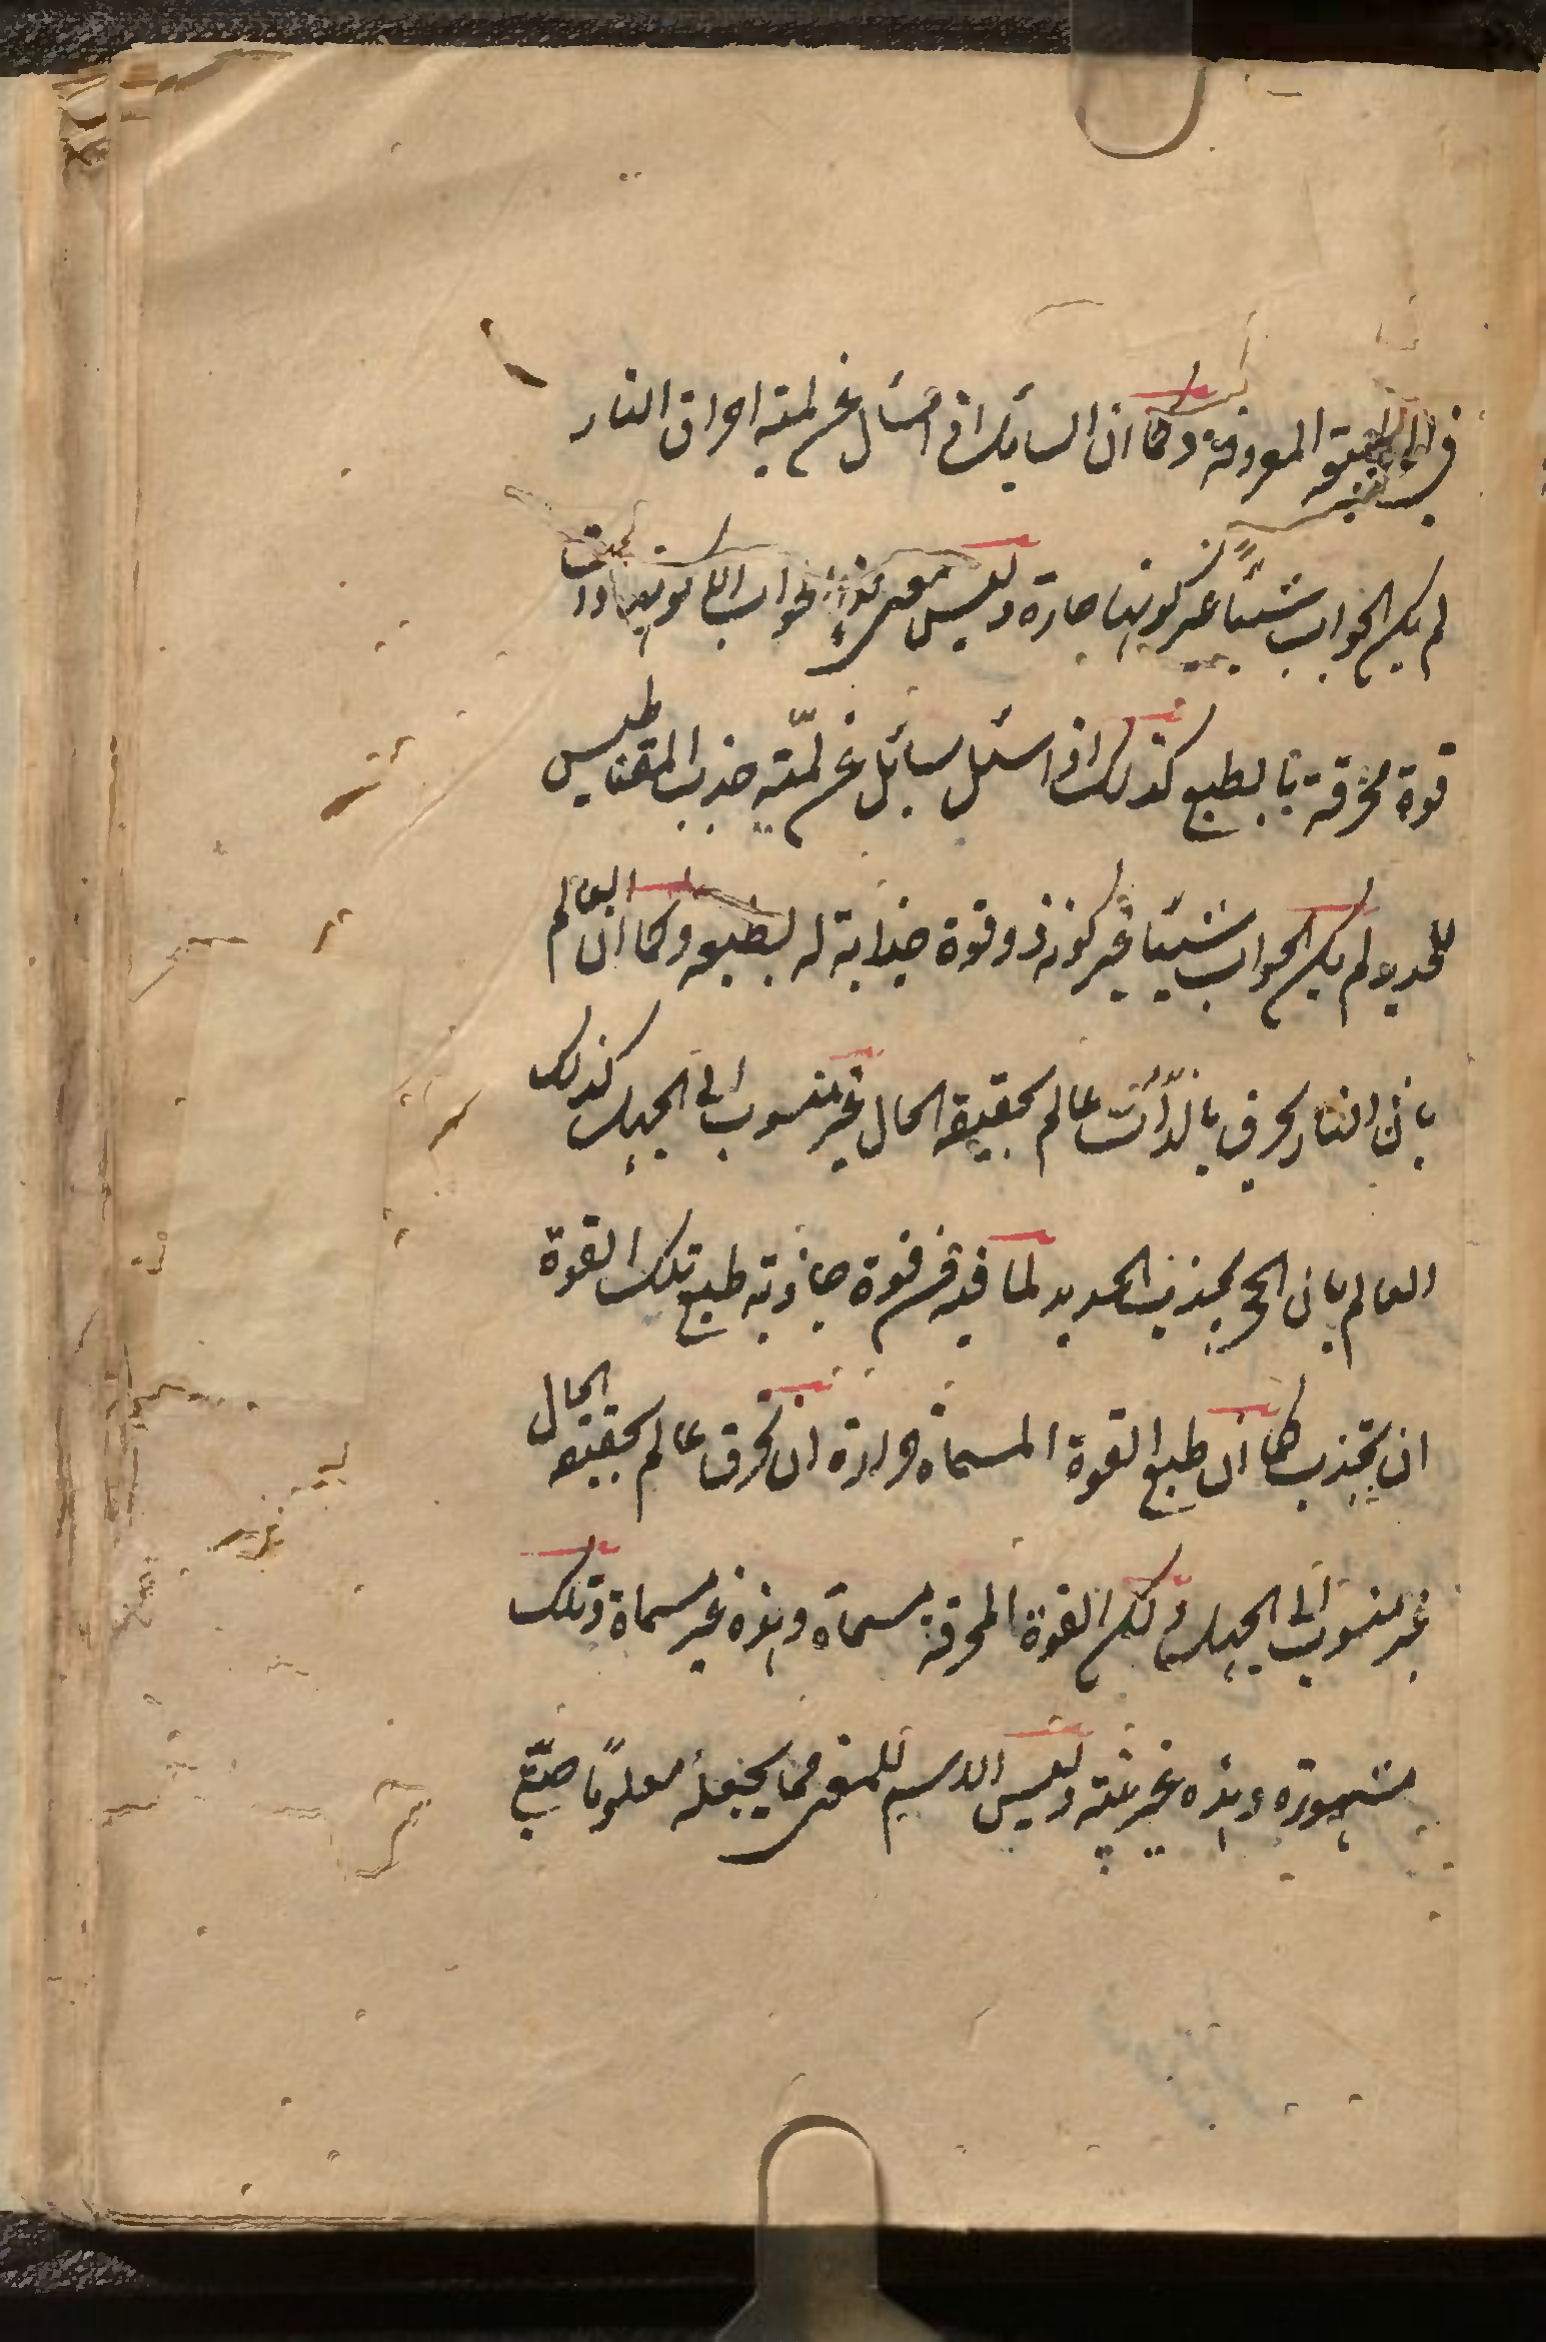 في الطبيعة المعروفة وكما ان السايل اذا سئل عن لمية احراق النار
لم يكن الجواب شيئا غير كونها حارة وليس معنى هذا الجواب الا كونها ذات
قوة محرقة بالطبع كذلك اذا سئل سائل عن لمّية جذب المقناطيس
للحديد لم يكن الجواب شيئا غير كونه ذو قوة جذابة له بطبعه وكما ان العالم
بان النار تحرق بالذات عالم بحقيقة الحال غير منسوب الى الجهل كذلك
العالم بان الحجر يجذب الحديد لما فيه من قوة جاذبة طبع تلك القوة
ان تجذب كما ان طبع القوة المسماة حرارة ان تحرق عالم بحقيقة الحال
غير منسوب الى الجهل ولكن القوة المحرقة مسماة وهذه غير مسماة وتلك
مشهورة وهذه غير وليس الاسم للمعنى مما يجعله معلومًا